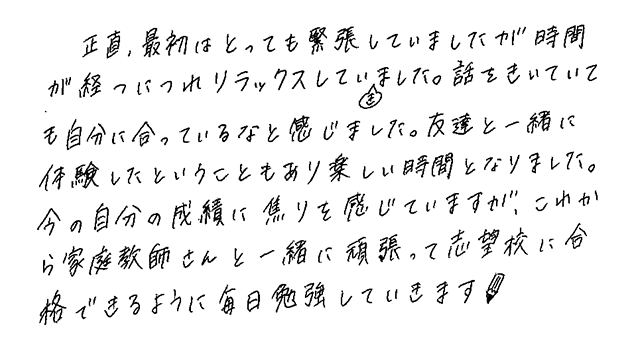 正直、最初はとっても緊張していましたが時間
が経つにつれリラックスしていました。話をきいていて
も自分に合っているなと感じました。友達と一緒に
体験したということもあり楽しい時間となりました。
今の自分の成績に焦りを感じていますが、これか
ら家庭教師さんと一緒に頑張って志望校に合
格できるように毎日勉強していきます